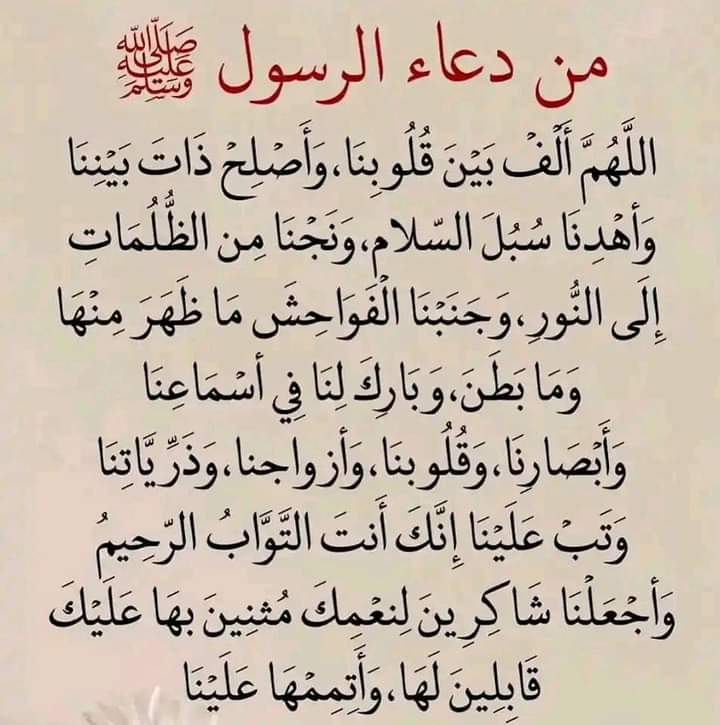 من دعاء الرسول ﷺ
اللَّهُمَّ أَلْفْ بَيْنَ قُلُوبِنَا، وَأَصْلِحْ ذَاتَ بَيْنِنَا
وَأهْدِنَا سُبُلَ السّلامِ، وَنَجْنَا مِن الظُّلُمَاتِ
إِلَى النُّورِ، وَجَنَبْنَا الْفَوَاحِشَ مَا ظَهَرَ مِنْهَا
وَمَا بَطَنَ، وَبَارِكَ لِنَا فِي أسْمَاعِنَا
وَأَبْصَارِنَا، وَقُلُوبنَا، وَأزواجنا، وَذَرِّيَّاتِنَا
وَتَبْ عَلَيْنَا إِنَّكَ أَنتَ التَّوَّابُ الرّحِيمُ
وَأجْعَلْنَا شَاكِرِينَ لِنعْمِكَ مُثنِينَ بهَا عَلَيْكَ
قَابِلِينَ لَهَا، وَأَتِمِمْهَا عَلَيْنَا